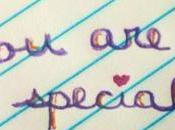 ou are
special